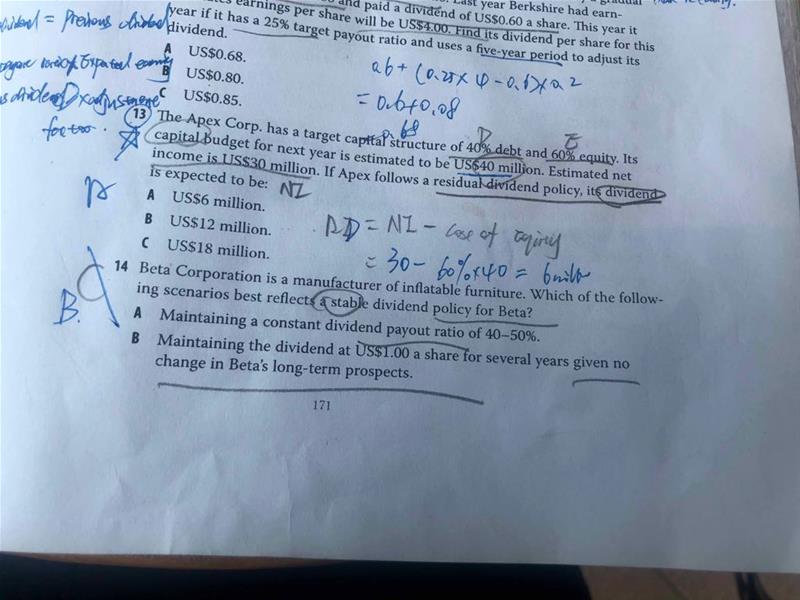 and paid a dividend of US$0.60 a share. This year it
earnings per share will be US$4.00. Find its dividend per share for this
year if it has a 25% target payout ratio and uses a five-year period to adjust its
dividend.
A US$0.68.
B US$0.80.
C US$0.85.
= Previous dividend
Expected earning
factor.
0.6 + (0.25 × 4 − 0.6) × 0.2
= 0.6 + 0.08
= 0.68
13 The Apex Corp. has a target capital structure of 40% debt and 60% equity. Its
D E
capital budget for next year is estimated to be US$40 million. Estimated net
income is US$30 million. If Apex follows a residual dividend policy, its dividend
is expected to be:
NI
A US$6 million.
B US$12 million.
C US$18 million.
A
= NI −
= 30 − 60% × 40 = 6
14 Beta Corporation is a manufacturer of inflatable furniture. Which of the follow-
ing scenarios best reflects a stable dividend policy for Beta?
A Maintaining a constant dividend payout ratio of 40–50%.
B Maintaining the dividend at US$1.00 a share for several years given no
change in Beta's long-term prospects.
B.
171